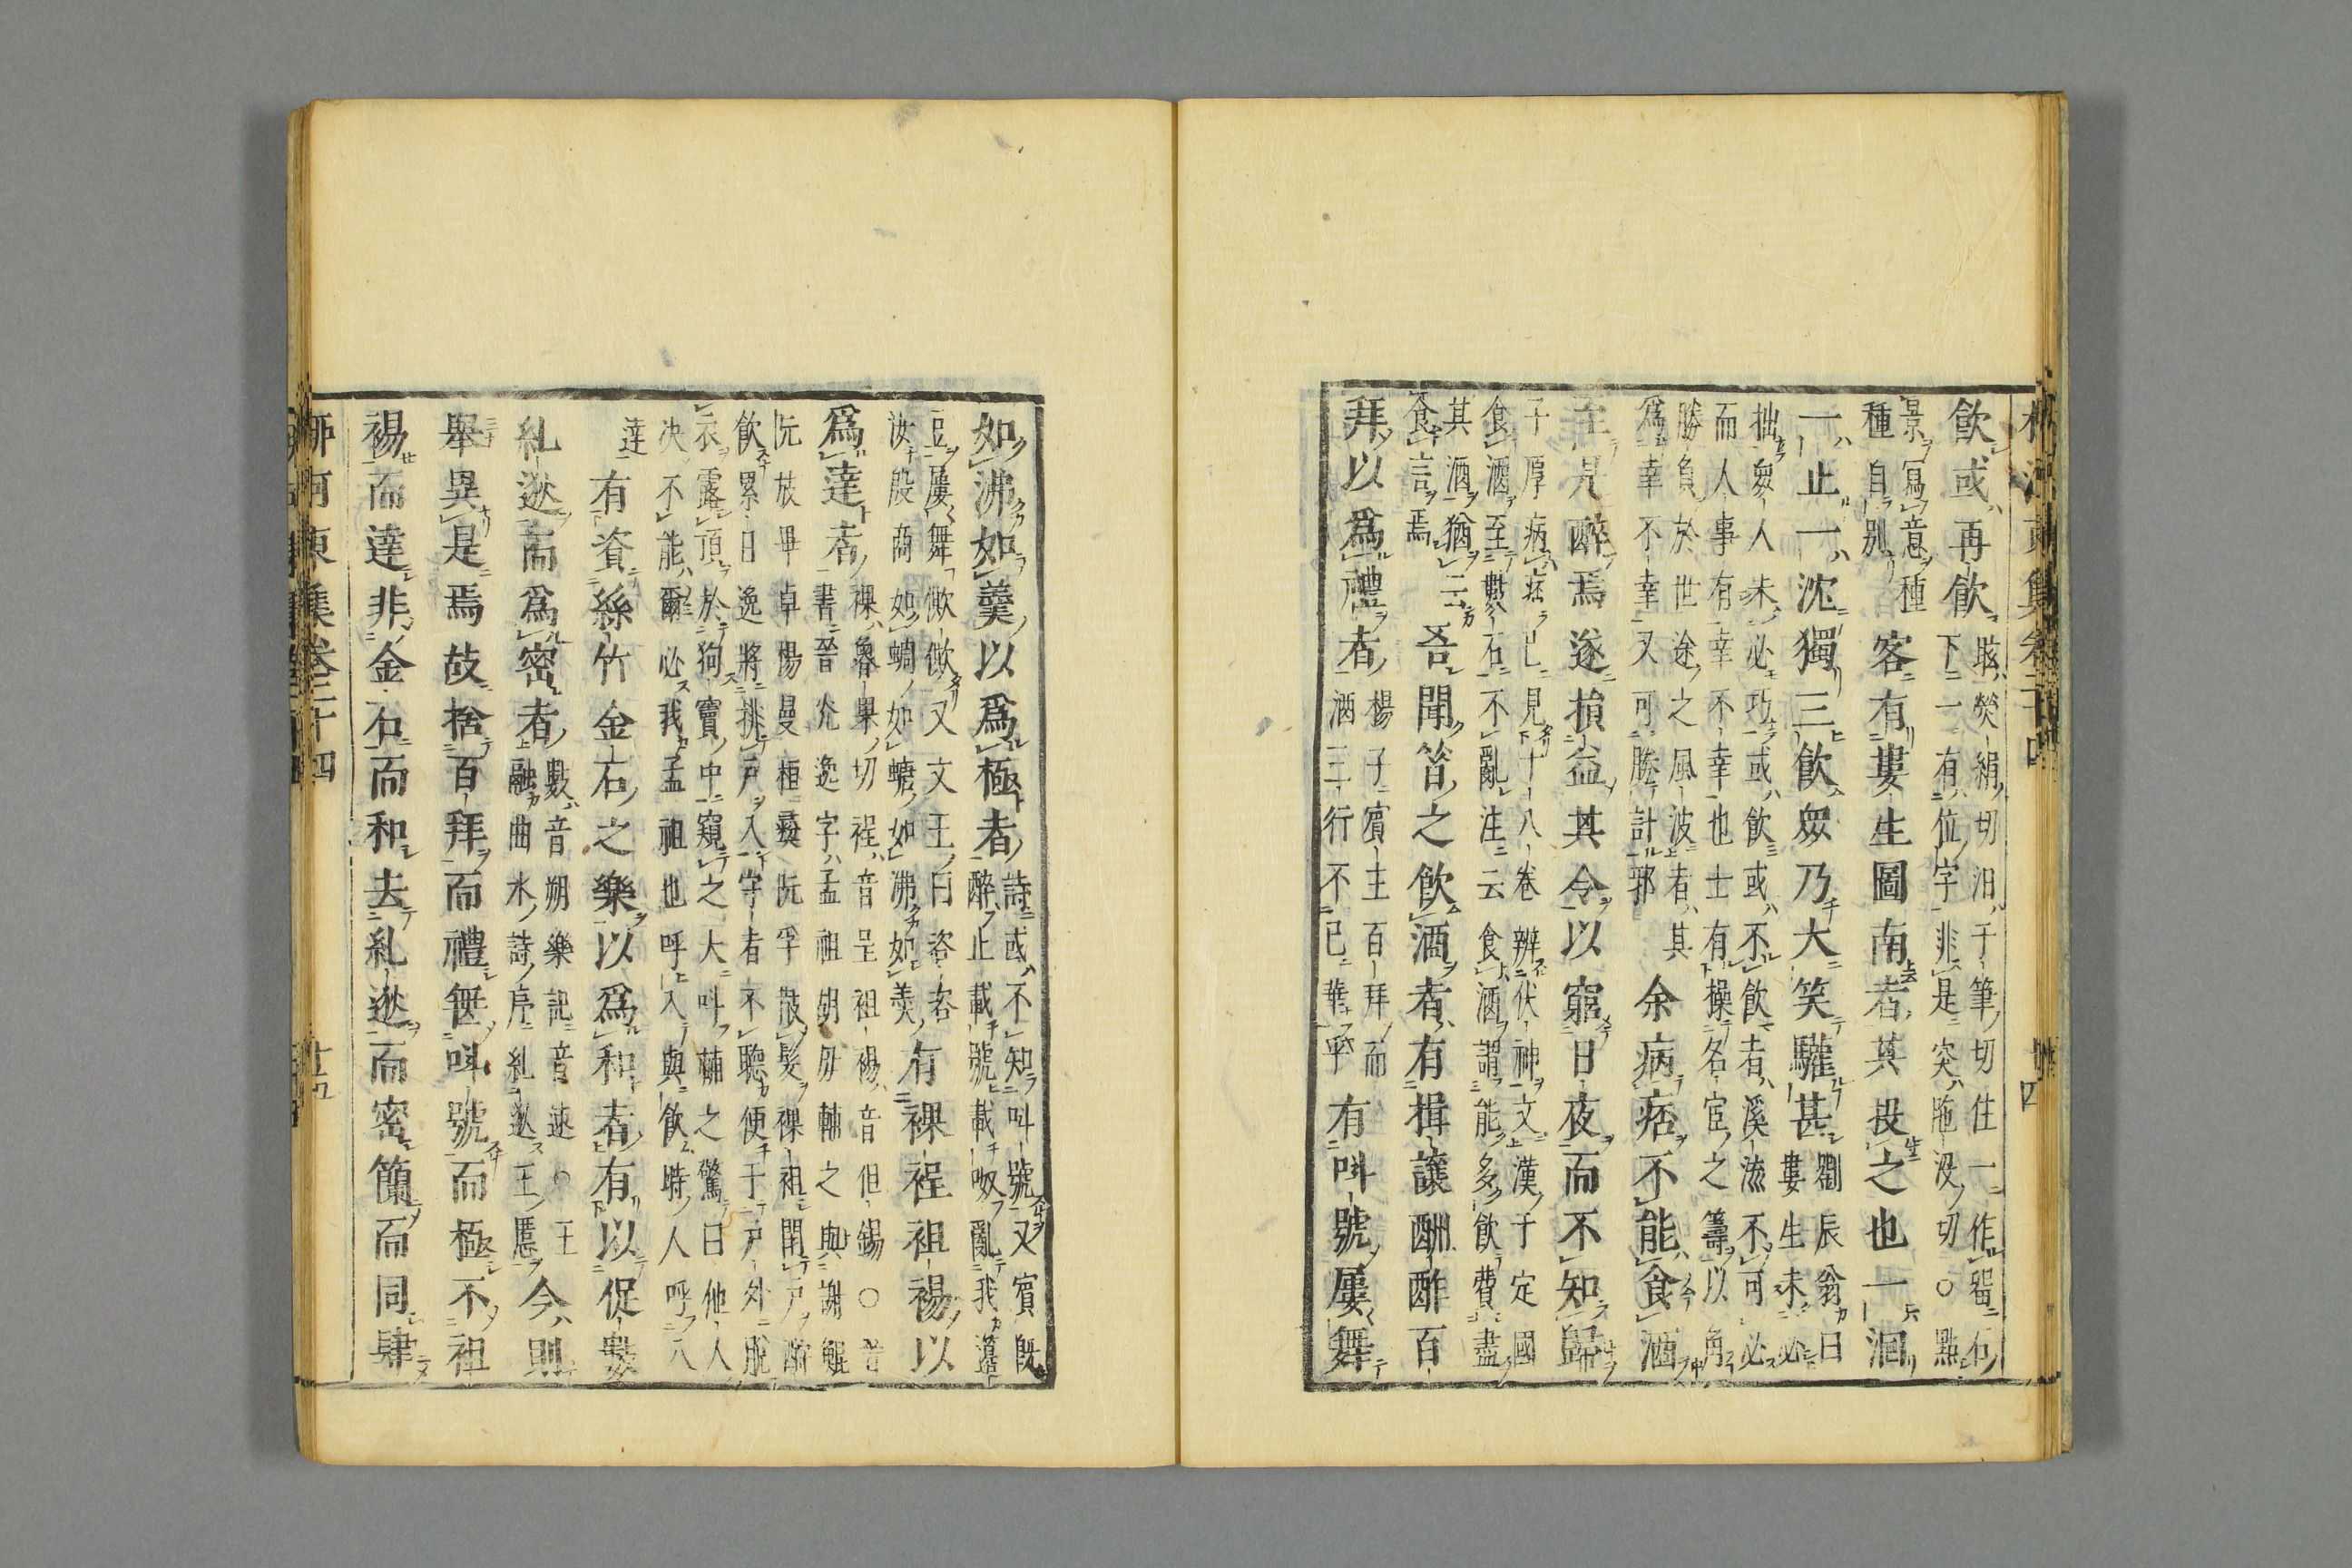 飲或再飲
眩熒絹切汨于筆切住一作留石
下一有位字非是突陁没切○黠
景寫意種
種自別
客有婁生圖南者其投之也一洄
一止一沈獨三飲衆乃大笑驩甚
劉辰翁曰
婁生未必
拙衆人未必巧或飲或不飲者溪滋不可必
而人事有幸不幸也士有操名宦之籌以角
勝負於世途之風波者其
爲幸不幸又可勝計邪
余病痞不能食酒
至是醉焉遂損益其令以窮日夜而不知歸
子厚病痞已見十八卷辨伏神文漢于定國
食酒至數石不亂注云食酒謂能多飲費盡
其酒猶云
食言焉
吾聞昔之飲酒者有揖讓酬酢百
拜以爲禮者
楊子賓主百拜而
酒三行不已華乎
有叫號屢舞
如沸如羹以爲極者
詩或不知叫號又賓既
醉止載號載呶亂我籩
豆屢舞僛僛又文王曰咨咨
汝殷商如蜩如螗如沸如羹
有裸裎袒裼以
爲達者
裸魯果切裎音呈袒裼音但錫○晉
書晉光逸字孟祖胡毋輔之與謝鯤
阮放畢卓陽曼桓彝阮孚散髮裸袒閉户酣
飲累日逸將排户入守者不聽便于户外脱
衣露頂於狗竇中窺之大叫輔之驚曰他人
决不能爾必我孟祖也呼入與飲時人呼八
達
有資絲竹金石之樂以爲和者有以促數
糺逖而爲密者
數音朔樂記音速○王
融曲水詩序糺逖王慝
今則
舉異是焉故捨百拜而禮無叫號而極不袒
裼而達非金石而和去糺逖而密簡而同肆
柳河東集卷二十四